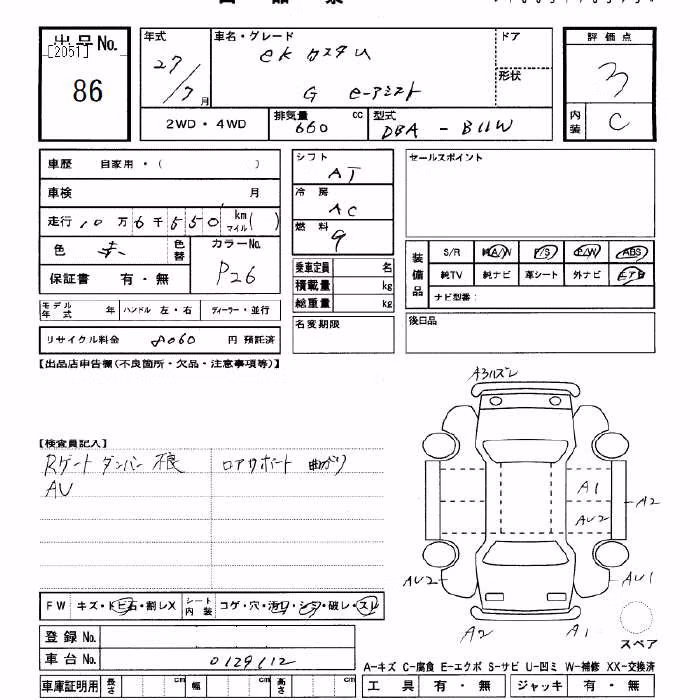 出品No.
[2051]
86
年式
27/7月
車名・グレード
ek カスタム
G e-アシスト
ドア
形状
2WD・4WD
排気量 660 cc
型式 DBA - B11W
評価点
3
内装 C
車歴 自家用・( )
車検 月
走行 10万6千550 km マイル( )
色 赤 色替
カラーNo. P26
保証書 有・無
モデル年式 年 ハンドル 左・右 ディーラー・並行
リサイクル料金 8060 円 預託済
シフト AT
冷房 AC
燃料 g
乗車定員 名
積載量 kg
総重量 kg
名変期限
セールスポイント
装備品 S/R 純A/W P/S P/W ABS
純TV 純ナビ 革シート 外ナビ ETC
ナビ型番:
後日品
【出品店申告欄(不良箇所・欠品・注意事項等)】
【検査員記入】
Rゲート ダンパー 不良 ロアサポート 曲がり
AU
A3ハズレ
A1
A2
AU2
AU2
AU1
A2
A1
スペア
FW キズ・トビ石・割レX シート内装 コゲ・穴・汚レ・シミ・破レ・スレ
登録No.
車台No. 0129112
A-キズ C-腐食 E-エクボ S-サビ U-凹ミ W-補修 XX-交換済
車庫証明用 長さ cm 幅 cm 高さ cm
工具 有・無 ジャッキ 有・無